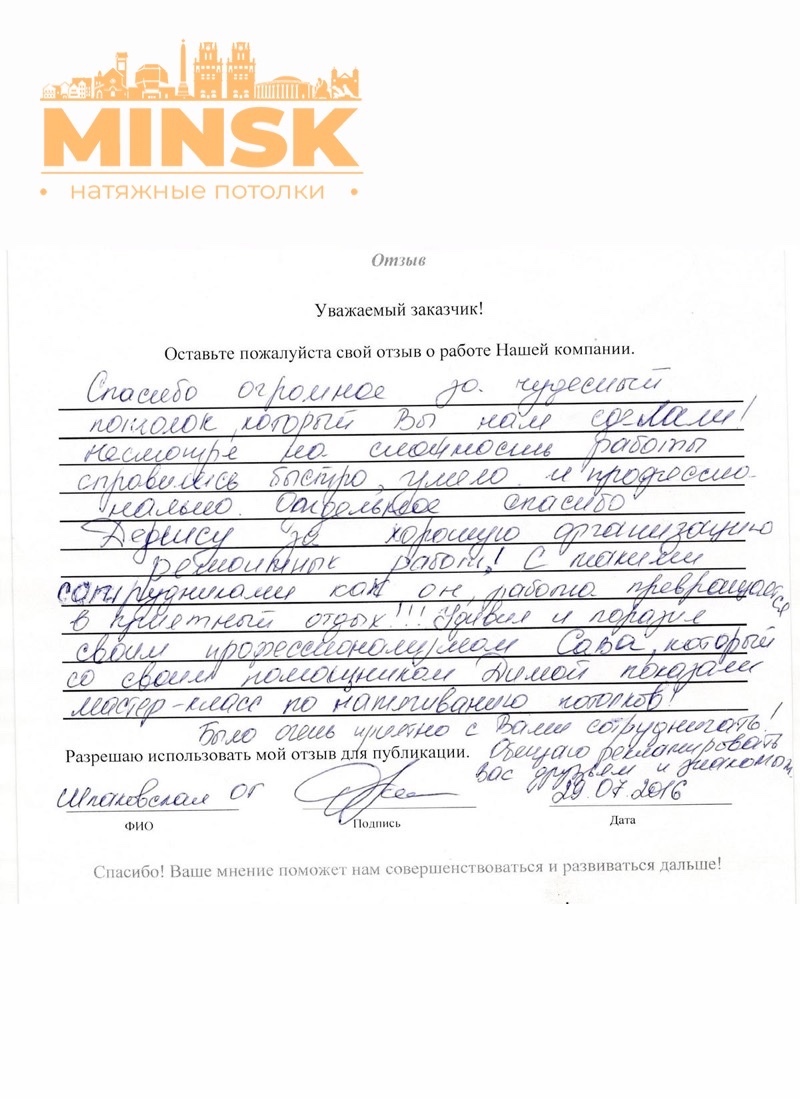 MINSK
• натяжные потолки •
Отзыв
Уважаемый заказчик!
Оставьте пожалуйста свой отзыв о работе Нашей компании.
Спасибо огромное за чудесный
потолок, который Вы нам сделали!
Несмотря на сложность работы
справились быстро, умело и профессио-
нально. Отдельное спасибо
Денису за хорошую организацию
ремонтных работ! С такими
сотрудниками как он, работа превращается
в приятный отдых!!! Удивил и поразил
своим профессионализмом Сава, который
со своим помощником Димой показали
мастер-класс по натягиванию потолков!
Было очень приятно с Вами сотрудничать!
Разрешаю использовать мой отзыв для публикации. Обещаю рекламировать
вас друзьям и знакомым
Шпаковская ОГ
29.07.2016
ФИО
Подпись
Дата
Спасибо! Ваше мнение поможет нам совершенствоваться и развиваться дальше!